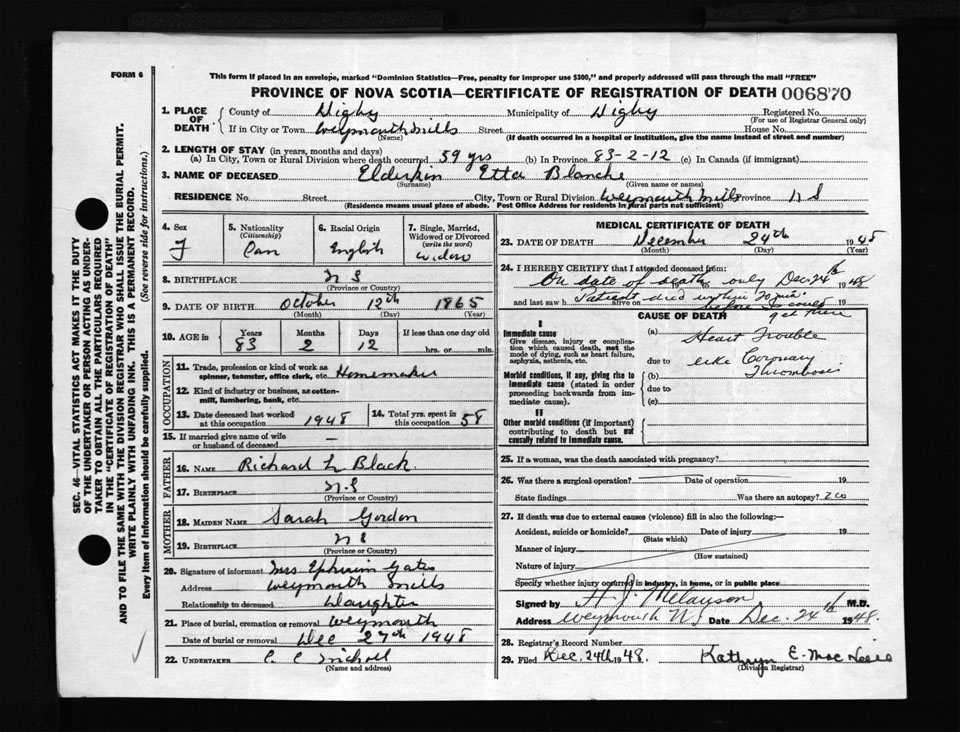 FORM 6
This form if placed in an envelope, marked "Dominion Statistics—Free, penalty for improper use $300," and properly addressed will pass through the mail "FREE"
PROVINCE OF NOVA SCOTIA—CERTIFICATE OF REGISTRATION OF DEATH 006870
1. PLACE OF DEATH County of Digby Municipality of Digby Registered No.
(For use of Registrar General only)
If in City or Town Weymouth Mills Street House No.
(Name) (If death occurred in a hospital or institution, give the name instead of street and number)
2. LENGTH OF STAY (in years, months and days)
(a) In City, Town or Rural Division where death occurred 59 yrs (b) In Province 83-2-12 (c) In Canada (if immigrant)
3. NAME OF DECEASED Elderkin Etta Blanche
(Surname) (Given name or names)
RESIDENCE No. Street City, Town or Rural Division Weymouth Mills Province N S
(Residence means usual place of abode. Post Office Address for residents in rural parts not sufficient)
4. Sex F
5. Nationality (Citizenship) Can
6. Racial Origin English
7. Single, Married, Widowed or Divorced (write the word) Widow
8. BIRTHPLACE N S
(Province or Country)
9. DATE OF BIRTH October 12th 1865
(Month) (Day) (Year)
10. AGE in Years 83 Months 2 Days 12 If less than one day old hrs. or min.
OCCUPATION
11. Trade, profession or kind of work as spinner, teamster, office clerk, etc. Homemaker
12. Kind of industry or business, as cotton-mill, lumbering, bank, etc.
13. Date deceased last worked at this occupation 1948
14. Total yrs. spent in this occupation 58
15. If married give name of wife or husband of deceased —
FATHER
16. NAME Richard L Black
17. BIRTHPLACE N.S
(Province or Country)
MOTHER
18. MAIDEN NAME Sarah Gordon
19. BIRTHPLACE N S
(Province or Country)
20. Signature of informant Mrs Ephraim Gates
Address Weymouth Mills
Relationship to deceased Daughter
21. Place of burial, cremation or removal Weymouth
Date of burial or removal Dec 27th 1948
22. UNDERTAKER E. E
(Name and address)
MEDICAL CERTIFICATE OF DEATH
23. DATE OF DEATH December 24th 1948
(Month) (Day) (Year)
24. I HEREBY CERTIFY that I attended deceased from:
On date of death only Dec 24th 1948
and last saw h alive on 19
Patient died within 20 min. before I could get there
CAUSE OF DEATH
I
Immediate cause
Give disease, injury or complication which caused death, not the mode of dying, such as heart failure, asphyxia, asthenia, etc.
(a) Heart Trouble
due to like Coronary
Morbid conditions, if any, giving rise to immediate cause (stated in order proceeding backwards from immediate cause).
(b) Thrombosis
due to
(c)
II
Other morbid conditions (if important) contributing to death but not causally related to immediate cause.
25. If a woman, was the death associated with pregnancy?
26. Was there a surgical operation? Date of operation 19
State findings Was there an autopsy? no
27. If death was due to external causes (violence) fill in also the following—
Accident, suicide or homicide? Date of injury 19
(State which)
Manner of injury
(How sustained)
Nature of injury
Specify whether injury occurred in industry, in home, or in public place
Signed by H. J. Melanson M.D.
Address Weymouth N.S Date Dec. 24th 1948.
28. Registrar's Record Number
29. Filed Dec. 24th 1948. Kathryn E.
(Division Registrar)
SEC. 46—VITAL STATISTICS ACT MAKES IT THE DUTY
OF THE UNDERTAKER OR PERSON ACTING AS UNDER-
TAKER TO OBTAIN ALL THE PARTICULARS REQUIRED
IN THE "CERTIFICATE OF REGISTRATION OF DEATH"
AND TO FILE THE SAME WITH THE DIVISION REGISTRAR WHO SHALL ISSUE THE BURIAL PERMIT.
WRITE PLAINLY WITH UNFADING INK. THIS IS A PERMANENT RECORD.
Every item of Information should be carefully supplied. (See reverse side for instructions.)